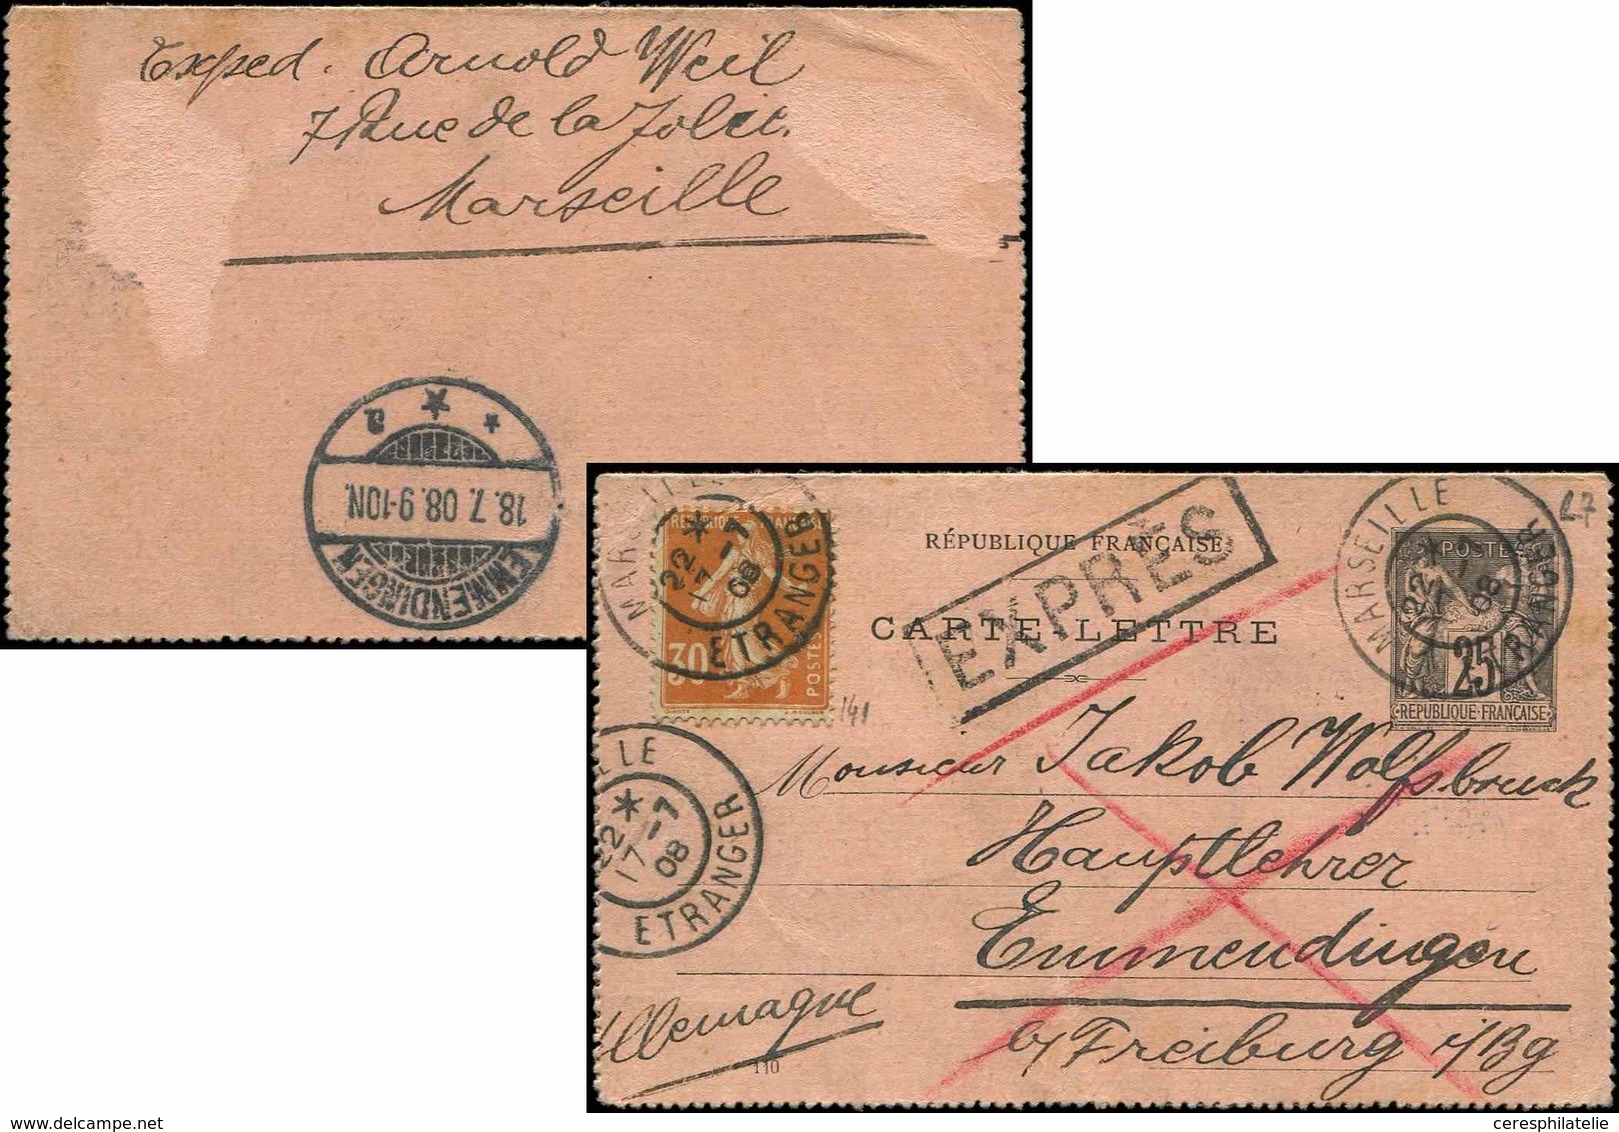 Exped. Arnold Weil
7 Rue de la Joliet.
Marseille
EMMENDINGEN
18.7.08.9-10N.
RÉPUBLIQUE FRANÇAISE
CARTE LETTRE
EXPRÈS
REPUBLIQUE FRANÇAISE
30
POSTES
MARSEILLE ETRANGER
22* 17-7 08
141
MARSEILLE ETRANGER
22* 17-7 08
27
POSTES
25
REPUBLIQUE·FRANÇAISE
Monsieur Jakob Wolfsbruck
Hauptlehrer
Emmendingen
b/ Freiburg i/Bg
Allemagne
110
ILLE ETRANGER
22* 17-7 08
ceresphilatelie